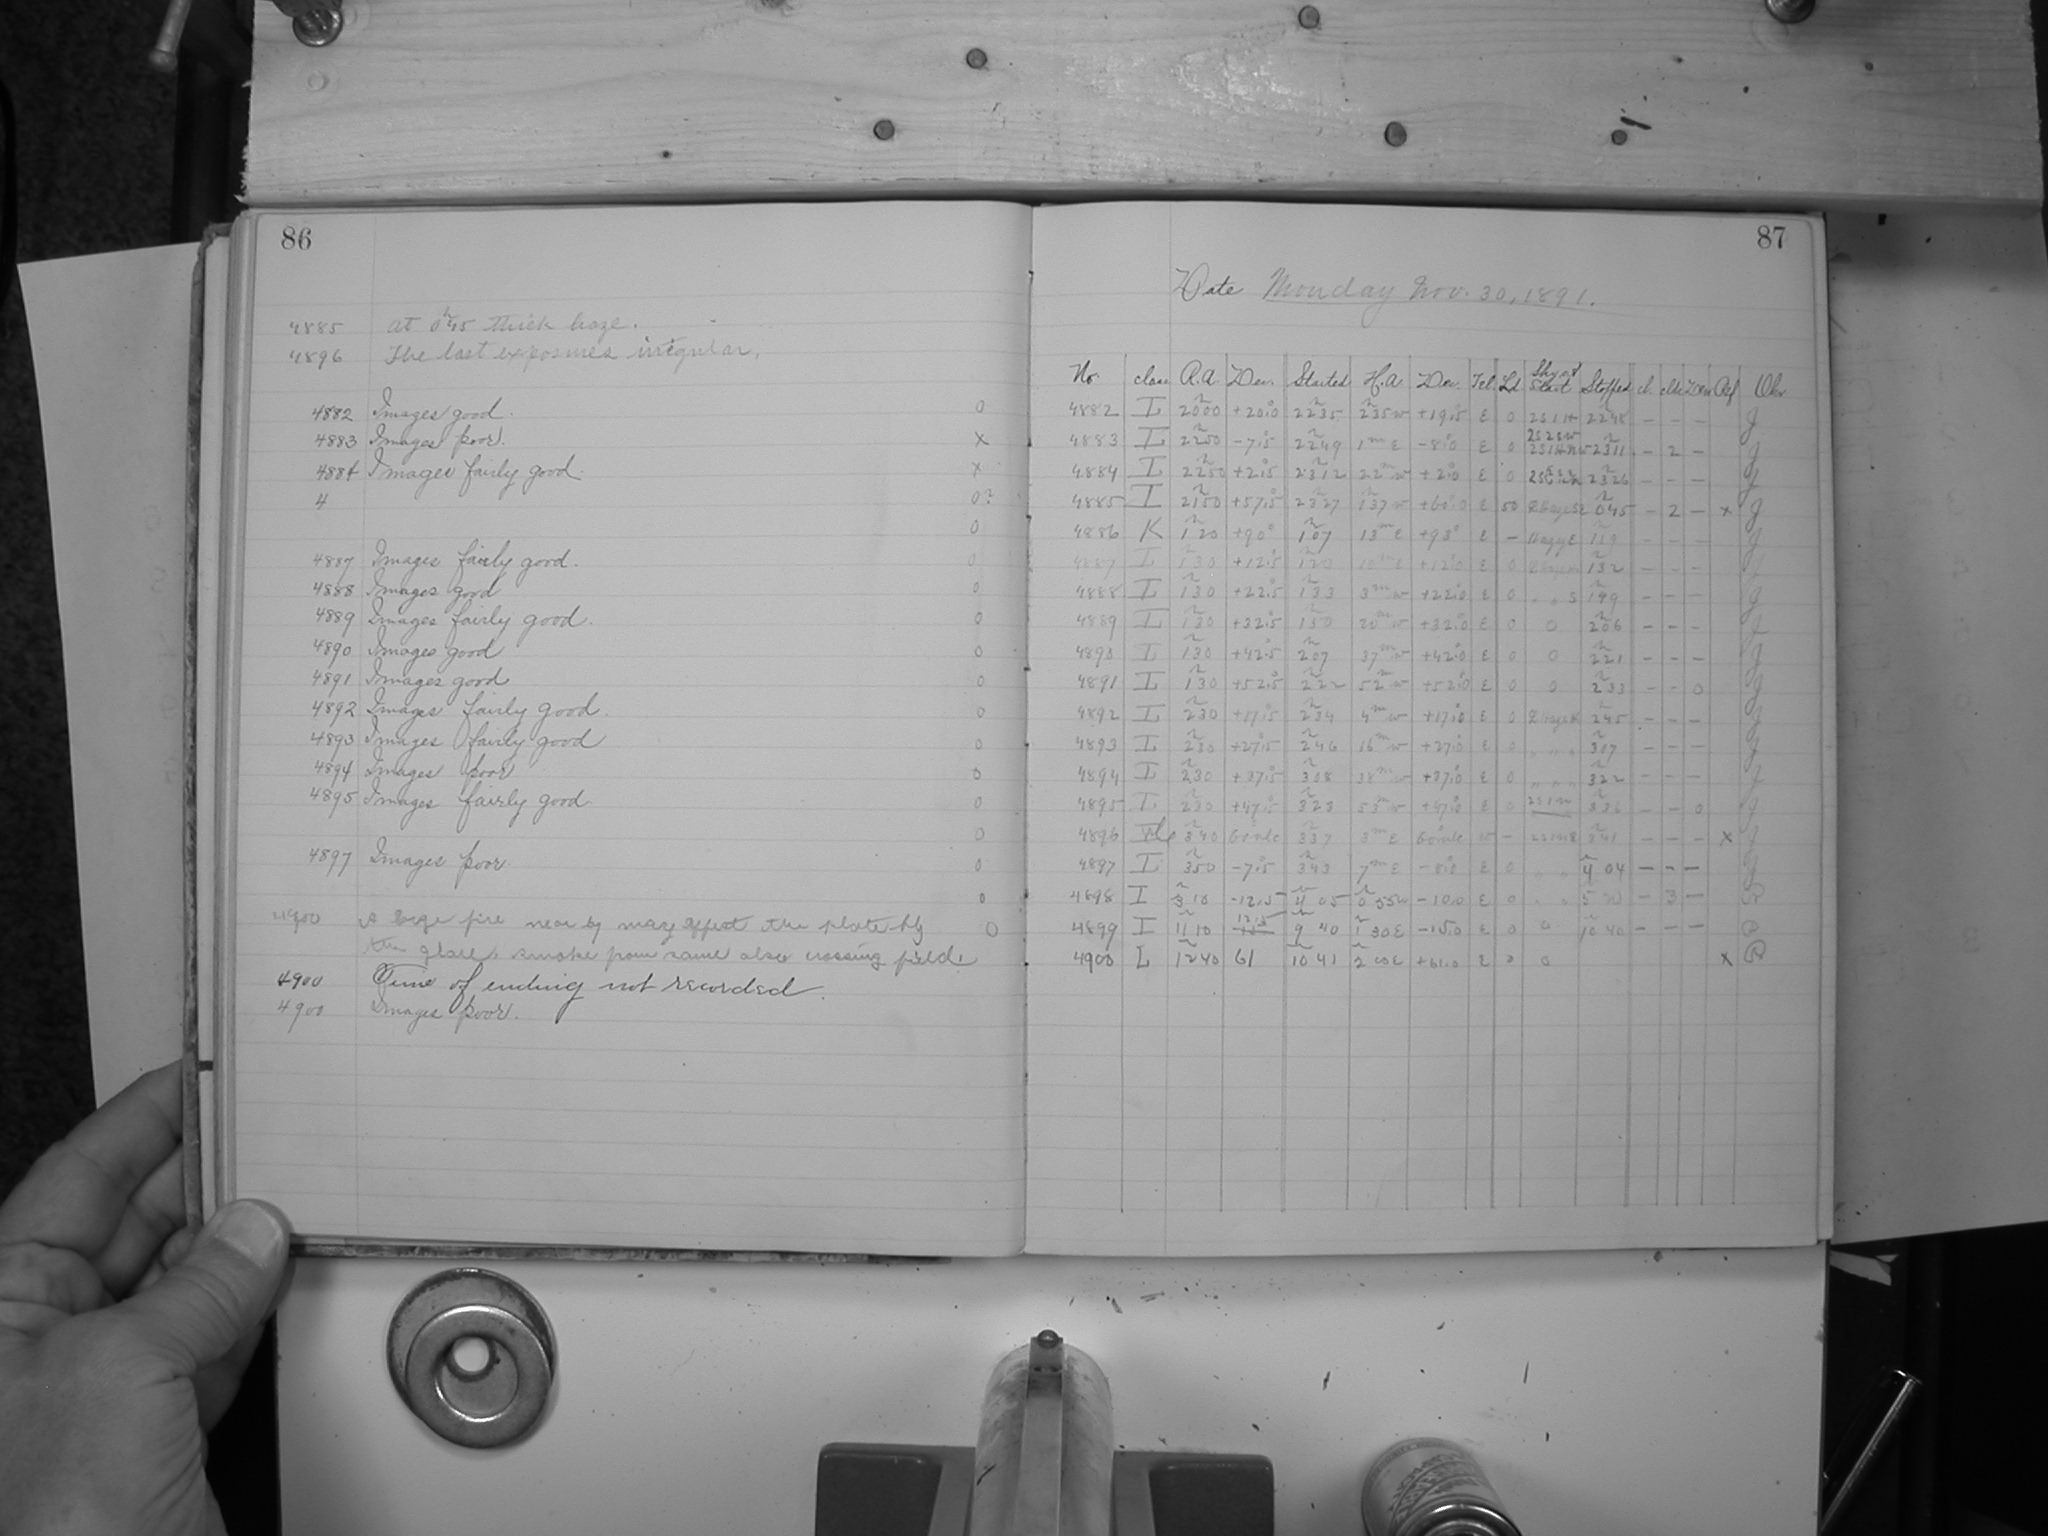 86
4885 at 0h45 thick haze.
4896 The last exposures irregular.
4882 Images good. 0
4883 Images poor. x
4884 Images fairly good. x
4 0?
0
4887 Images fairly good. 0
4888 Images good 0
4889 Images fairly good. 0
4890 Images good 0
4891 Images good 0
4892 Images fairly good. 0
4893 Images fairly good 0
4894 Images poor 0
4895 Images fairly good 0
0
4897 Images poor. 0
0
4900 A large fire near by may affect the plate by 0
the glare, smoke from same also crossing field.
4900 Time of ending not recorded.
4900 Images poor.
87
Date Monday Nov. 30, 1891.
No. class R.A. Dec. Started H.A Dec. Tel. Ld. Sky at Start Stopped cl. clk Dew Ref Obs
4882 I 20h00 +20°.0 22h35 2h35w +19°.5 E 0 2h48 - - - J
4883 I 22h50 -7°.5 22h49 1m E -8°.0 E 0 23h11 - 2 - J
4884 I 22h50 +2°.5 23h12 22m w +2°.0 E 0 23h26 - - - J
4885 I 21h50 +57°.5 23h27 1h37w +60°.0 E 50 0h45 - 2 - x J
4886 K 1h20 +90° 1h07 13m E +93° E - Hazy E 1h19 - - - J
4887 I 1h30 +12°.5 1h20 10m E +12°.0 E 0 1h32 - - - J
4888 I 1h30 +22°.5 1h33 3m w +22°.0 E 0 " " S 1h49 - - - J
4889 I 1h30 +32°.5 1h50 20m w +32°.0 E 0 0 2h06 - - - J
4890 I 1h30 +42°.5 2h07 37m w +42°.0 E 0 0 2h21 - - - J
4891 I 1h30 +52°.5 2h22 52m w +52°.0 E 0 0 2h33 - - 0 J
4892 I 2h30 +17°.5 2h34 4m w +17°.0 E 0 2h45 - - - J
4893 I 2h30 +27°.5 2h46 16m w +27°.0 E 0 " " " 3h07 - - - J
4894 I 2h30 +37°.5 3h08 38m w +37°.0 E 0 " " " 3h22 - - - J
4895 I 2h30 +47°.5 3h23 53m w +47°.0 E 0 3h36 - - 0 J
4896 3h40 3h37 3m E w - 3h41 - - - x J
4897 I 3h50 -7°.5 3h43 7m E -8°.0 E 0 " " 4h04 - - - J
4898 I 3h10 -12.5 4h05 0h55w -10.0 E 0 " " - 3 -
4899 I 11h10 12.5 9 40 1h30E -15.0 E 0 0 10h40 - - -
4900 L 12h40 61 10h41 2h00E +61.0 E 0 0 x